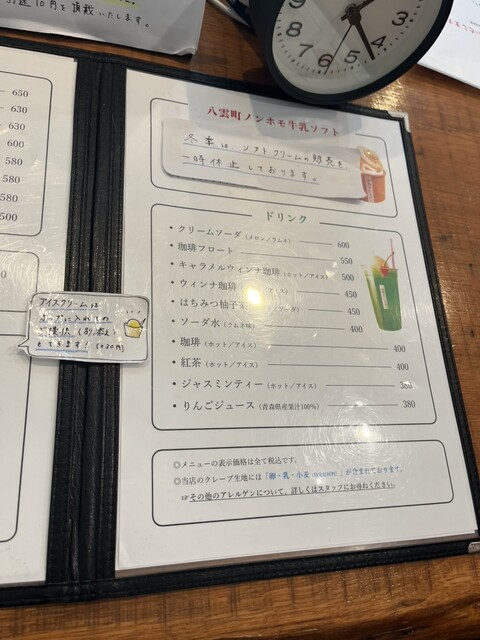 10月を頂戴いたします。
650
630
630
600
580
580
500
八雲町ノンホモ牛乳ソフト
冬季は ソフトクリームの販売を
一時休止しております。
ドリンク
・クリームソーダ（メロン／ラムネ） 600
・珈琲フロート 550
・キャラメルウィンナ珈琲（ホット／アイス） 500
・ウィンナ珈琲 アイス） 450
・はちみつ柚子 ソーダ） 450
・ソーダ水（ラムネ味） 400
・珈琲（ホット／アイス） 400
・紅茶（ホット／アイス） 400
・ジャスミンティー（ホット／アイス） 380
・りんごジュース（青森県産果汁100%） 380
アイスクリームは
カップに入れての
ご提供（別添え）
もできます！（+30円）
◎メニューの表示価格は全て税込です。
◎当店のクレープ生地には「卵・乳・小麦 」が含まれております。
☞その他のアレルゲンについて、詳しくはスタッフにお尋ねください。
2
3
4
5
6
7
8
9